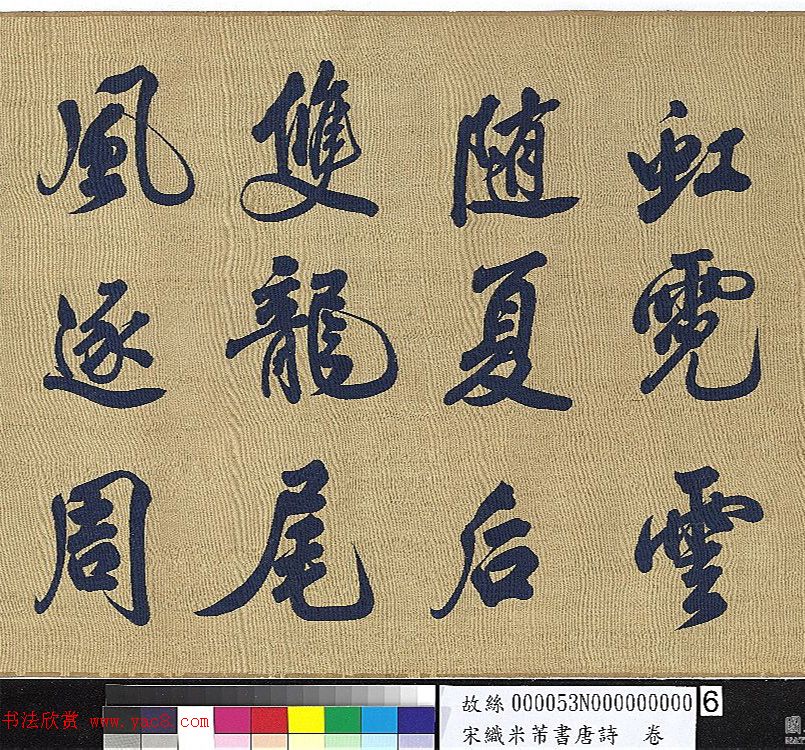 虹霓雲
随夏后
雙龍尾
風逐周
書法欣赏 www.yac8.com
故絲 000053N000000000 6
宋織米芾書唐詩 卷